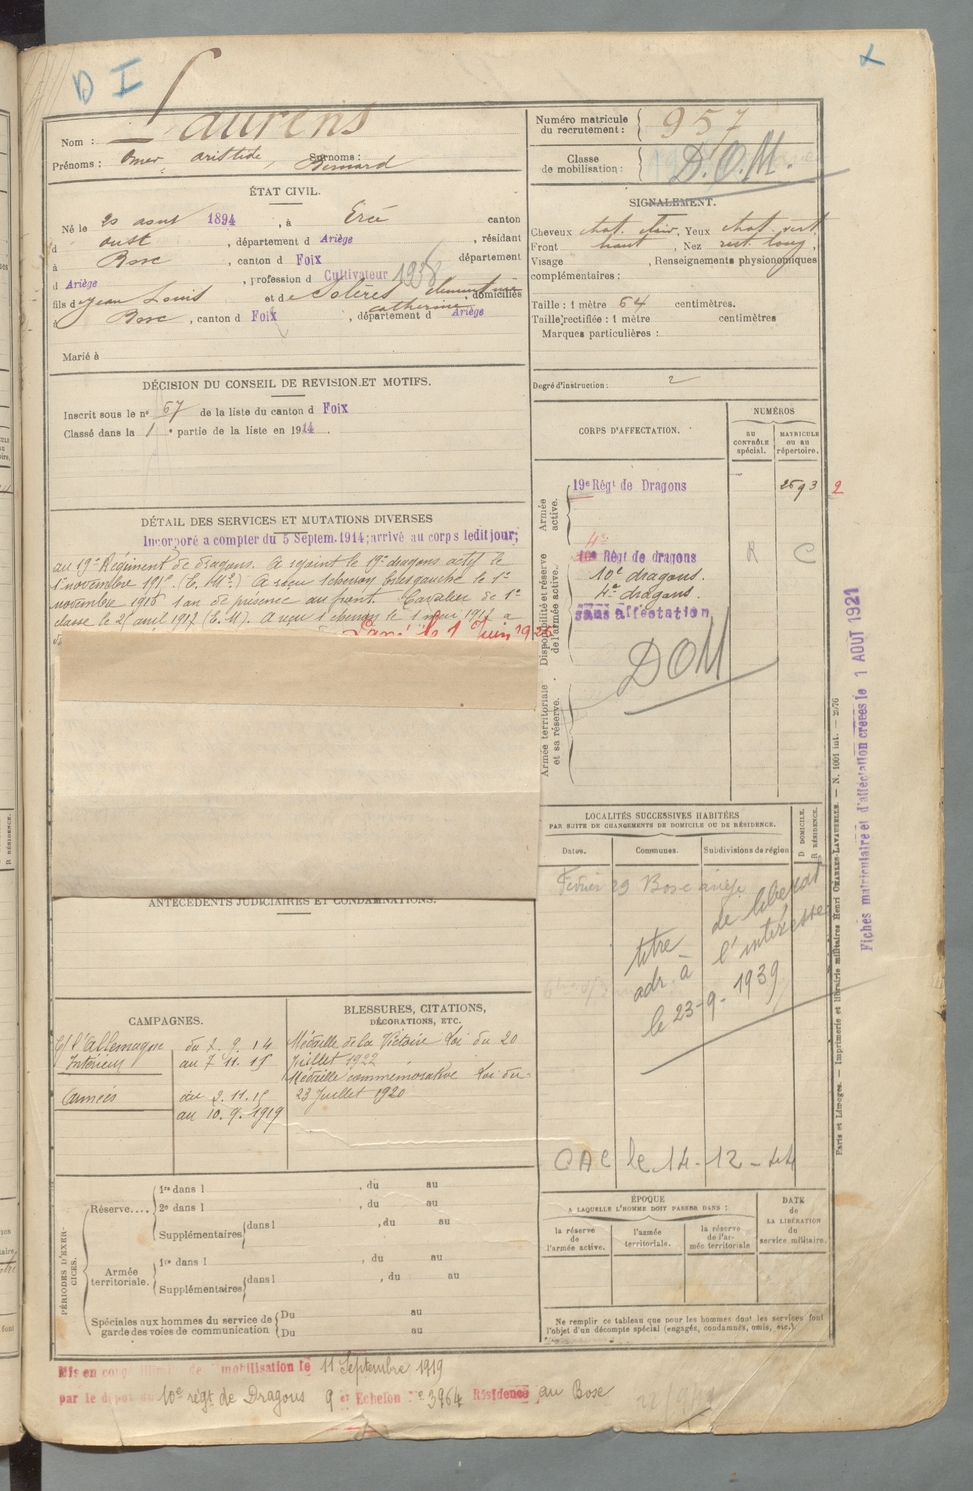 D I
X
Nom : Laurens
Prénoms : Omer Aristide, Surnoms : Bernard
Numéro matricule du recrutement : 957
Classe de mobilisation : D.O.M.
ÉTAT CIVIL.
Né le 20 aout 1894, à Ercé canton
d oust, département d Ariège, résidant
à Bosc, canton d Foix département
d Ariège, profession d Cultivateur 1938
fils de Jean Louis et de Solères catherine, domiciliés
à Bosc, canton d Foix, département d Ariège
Marié à
SIGNALEMENT.
Cheveux chat. clair, Yeux chat. vert,
Front haut, Nez rect. long,
Visage , Renseignements physionomiques
complémentaires :
Taille : 1 mètre 64 centimètres.
Taille rectifiée : 1 mètre centimètres
Marques particulières :
Degré d'instruction : 2
DÉCISION DU CONSEIL DE REVISION ET MOTIFS.
Inscrit sous le n° 67 de la liste du canton d Foix
Classé dans la 1e partie de la liste en 1914.
DÉTAIL DES SERVICES ET MUTATIONS DIVERSES
Incorporé a compter du 5 Septem. 1914; arrivé au corps ledit jour;
au 19e Régiment de dragons. A rejoint le 19e dragons actif le
1er novembre 1915. A reçu 1 chevron bras gauche le 1er
novembre 1916 1 an de présence au front. Cavalier de 1e
classe le 21 avril 1917 A reçu 1 chevron le 1 mai 1917 a
le 1 Juin 1926
CORPS D'AFFECTATION.
NUMÉROS
AU CONTRÔLE spécial.
MATRICULE ou au répertoire.
Armée active.
19e Régt de Dragons
2693
2
Disponibilité et réserve de l'armée active.
4e
10e Régt de dragons
R C
10e dragons.
4e dragons.
sans affectation
DOM
Armée territoriale et sa réserve.
LOCALITÉS SUCCESSIVES HABITÉES
PAR SUITE DE CHANGEMENTS DE DOMICILE OU DE RÉSIDENCE.
Dates.
Communes.
Subdivisions de région
D DOMICILE.
R RÉSIDENCE.
Février 29 Bosc ariège
titre de libérat
adr. à l'intéressé
le 23-9-1939
CAC le 14-12-44
ANTÉCÉDENTS JUDICIAIRES ET CONDAMNATIONS.
CAMPAGNES.
C/ l'Allemagne
Intérieur du 5. 9. 14
au 7. 11. 15
Armées du 8. 11. 15
au 10. 9. 1919
BLESSURES, CITATIONS,
DÉCORATIONS, ETC.
Médaille de la Victoire Loi du 20
Juillet 1922
Médaille commémorative Loi du
23 Juillet 1920
PÉRIODES D'EXERCICES.
Réserve....
1re dans l , du au
2e dans l , du au
Supplémentaires dans l , du au
Armée territoriale.
1re dans l , du au
Supplémentaires dans l , du au
Spéciales aux hommes du service de garde des voies de communication
Du au
Du au
ÉPOQUE
A LAQUELLE L'HOMME DOIT PASSER DANS :
la réserve de l'armée active.
l'armée territoriale.
la réserve de l'armée territoriale
DATE
de
LA LIBÉRATION
du
service militaire.
Ne remplir ce tableau que pour les hommes dont les services font
l'objet d'un décompte spécial (engagés, condamnés, omis, etc.).
Mis en congé illimité de mobilisation le 11 Septembre 1919
par le dépot du 10e régt de Dragons 9e Echelon N° 3964 Résidence au Bosc
Fiches matriculaire et d'affectation créées le 1 AOUT 1921
Paris et Limoges. — Imprimerie et librairie militaires Henri CHARLES-LAVAUZELLE. — N. 1001 int. —